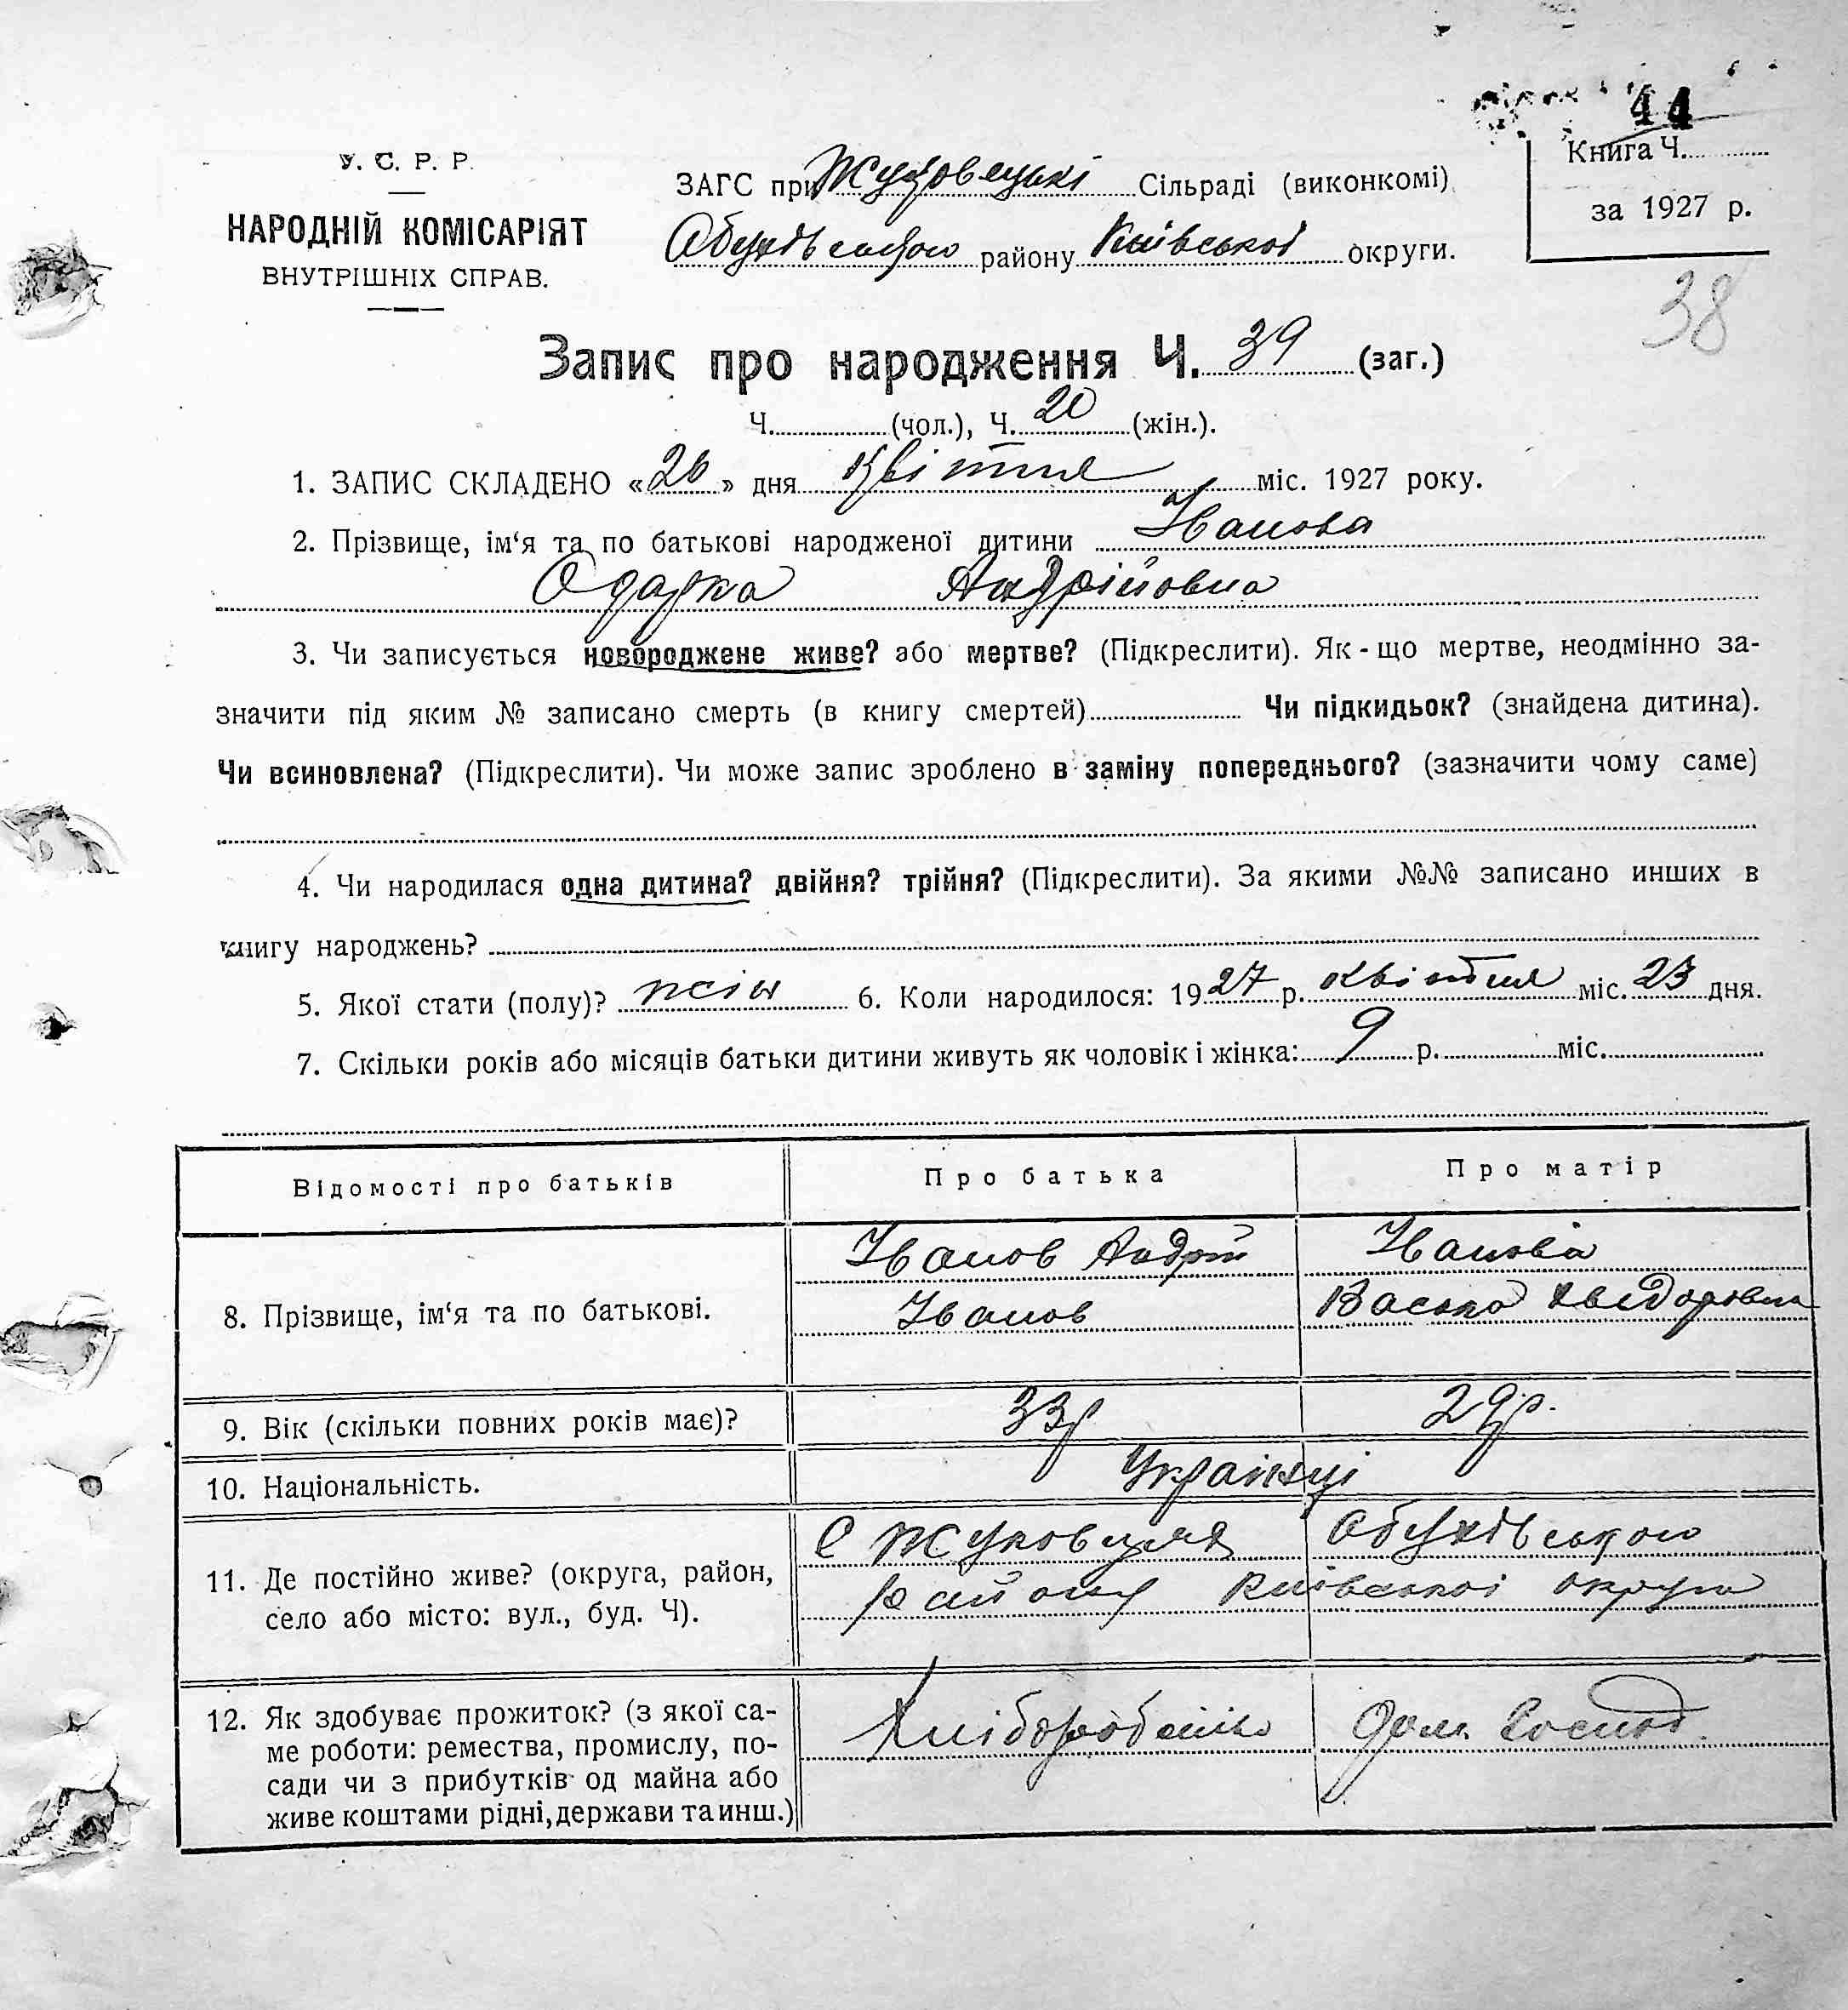 44
У. С. Р. Р.
НАРОДНІЙ КОМІСАРІЯТ
ВНУТРІШНІХ СПРАВ.
ЗАГС при Жуковецькі Сільраді (виконкомі)
Обухівського району Київської округи.
Книга Ч.
за 1927 р.
38
Запис про народження Ч. 39 (заг.)
Ч. (чол.), Ч. 20 (жін.).
1. ЗАПИС СКЛАДЕНО «26» дня квітня міс. 1927 року.
2. Прізвище, ім‘я та по батькові народженої дитини Іванова
Одарка Андрійовна
3. Чи записується новороджене живе? або мертве? (Підкреслити). Як-що мертве, неодмінно за-
значити під яким № записано смерть (в книгу смертей) Чи підкидьок? (знайдена дитина).
Чи всиновлена? (Підкреслити). Чи може запис зроблено в заміну попереднього? (зазначити чому саме)
4. Чи народилася одна дитина? двійня? трійня? (Підкреслити). За якими №№ записано инших в
книгу народжень?
5. Якої стати (полу)? жін 6. Коли народилося: 1927 р. квітня міс. 23 дня.
7. Скільки років або місяців батьки дитини живуть як чоловік і жінка: 9 р. міс.
Відомості про батьків Про батька Про матір
8. Прізвище, ім‘я та по батькові.
Іванов Андрій
Іванов
Іванова
Васька
9. Вік (скільки повних років має)? 33р 29р.
10. Національність. Українці
11. Де постійно живе? (округа, район,
село або місто: вул., буд. Ч).
С Жуковця Обухівського
району Київської округи
12. Як здобуває прожиток? (з якої са-
ме роботи: ремества, промислу, по-
сади чи з прибутків од майна або
живе коштами рідні, держави та инш.)
Хліборобство
Дом. Господ.